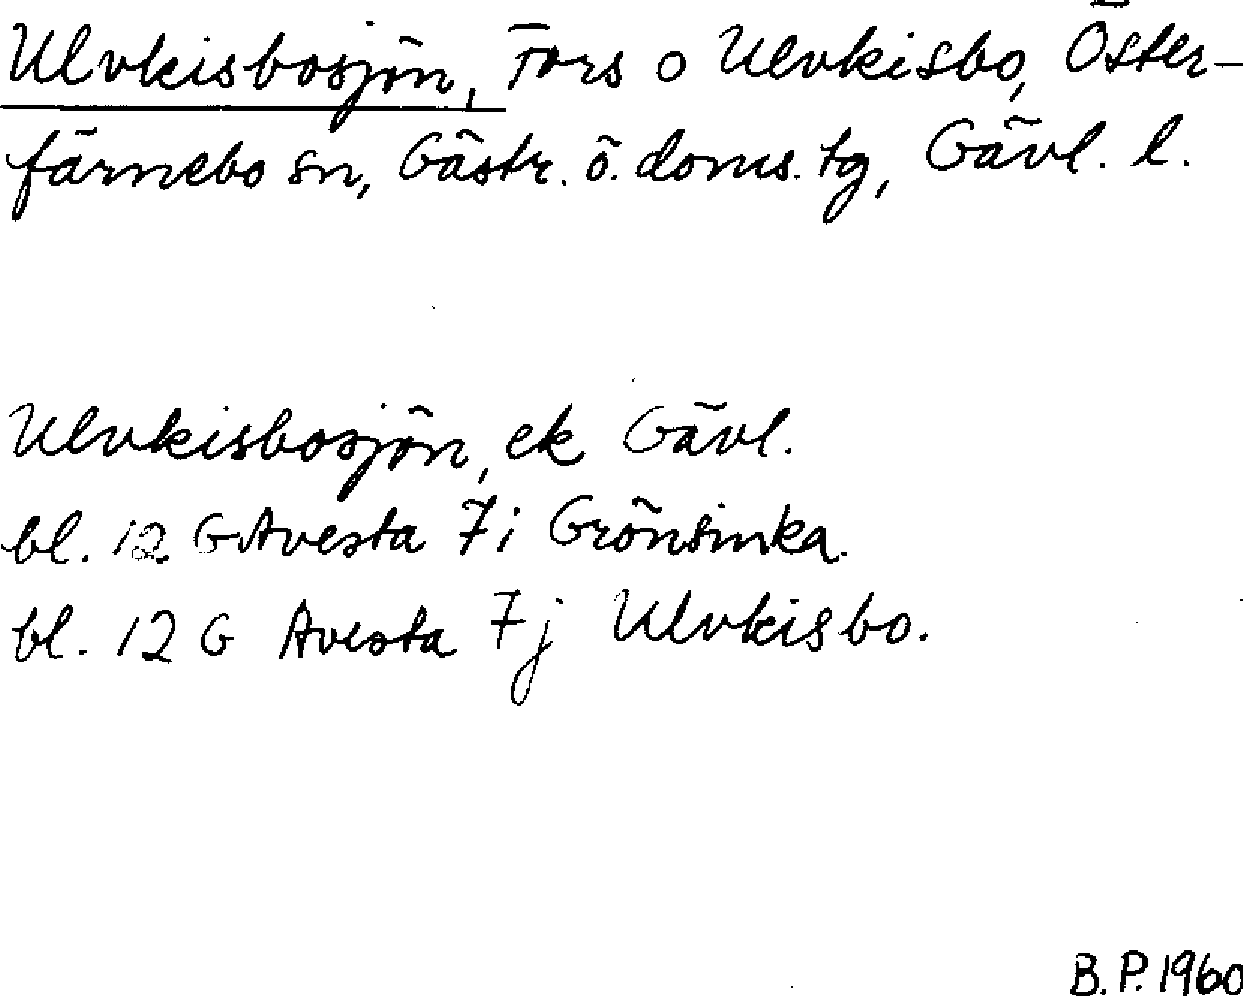 Ulvkisbosjön, Fors o Ulvkisbo, Öster-
färnebo sn, Gästr. ö. doms. tg, Gävl. l.
Ulvkisbosjön, ek Gävl.
bl. 12 G Avesta 7i Grönsinka.
bl. 12 G Avesta 7j Ulvkisbo.
B. P. 1960